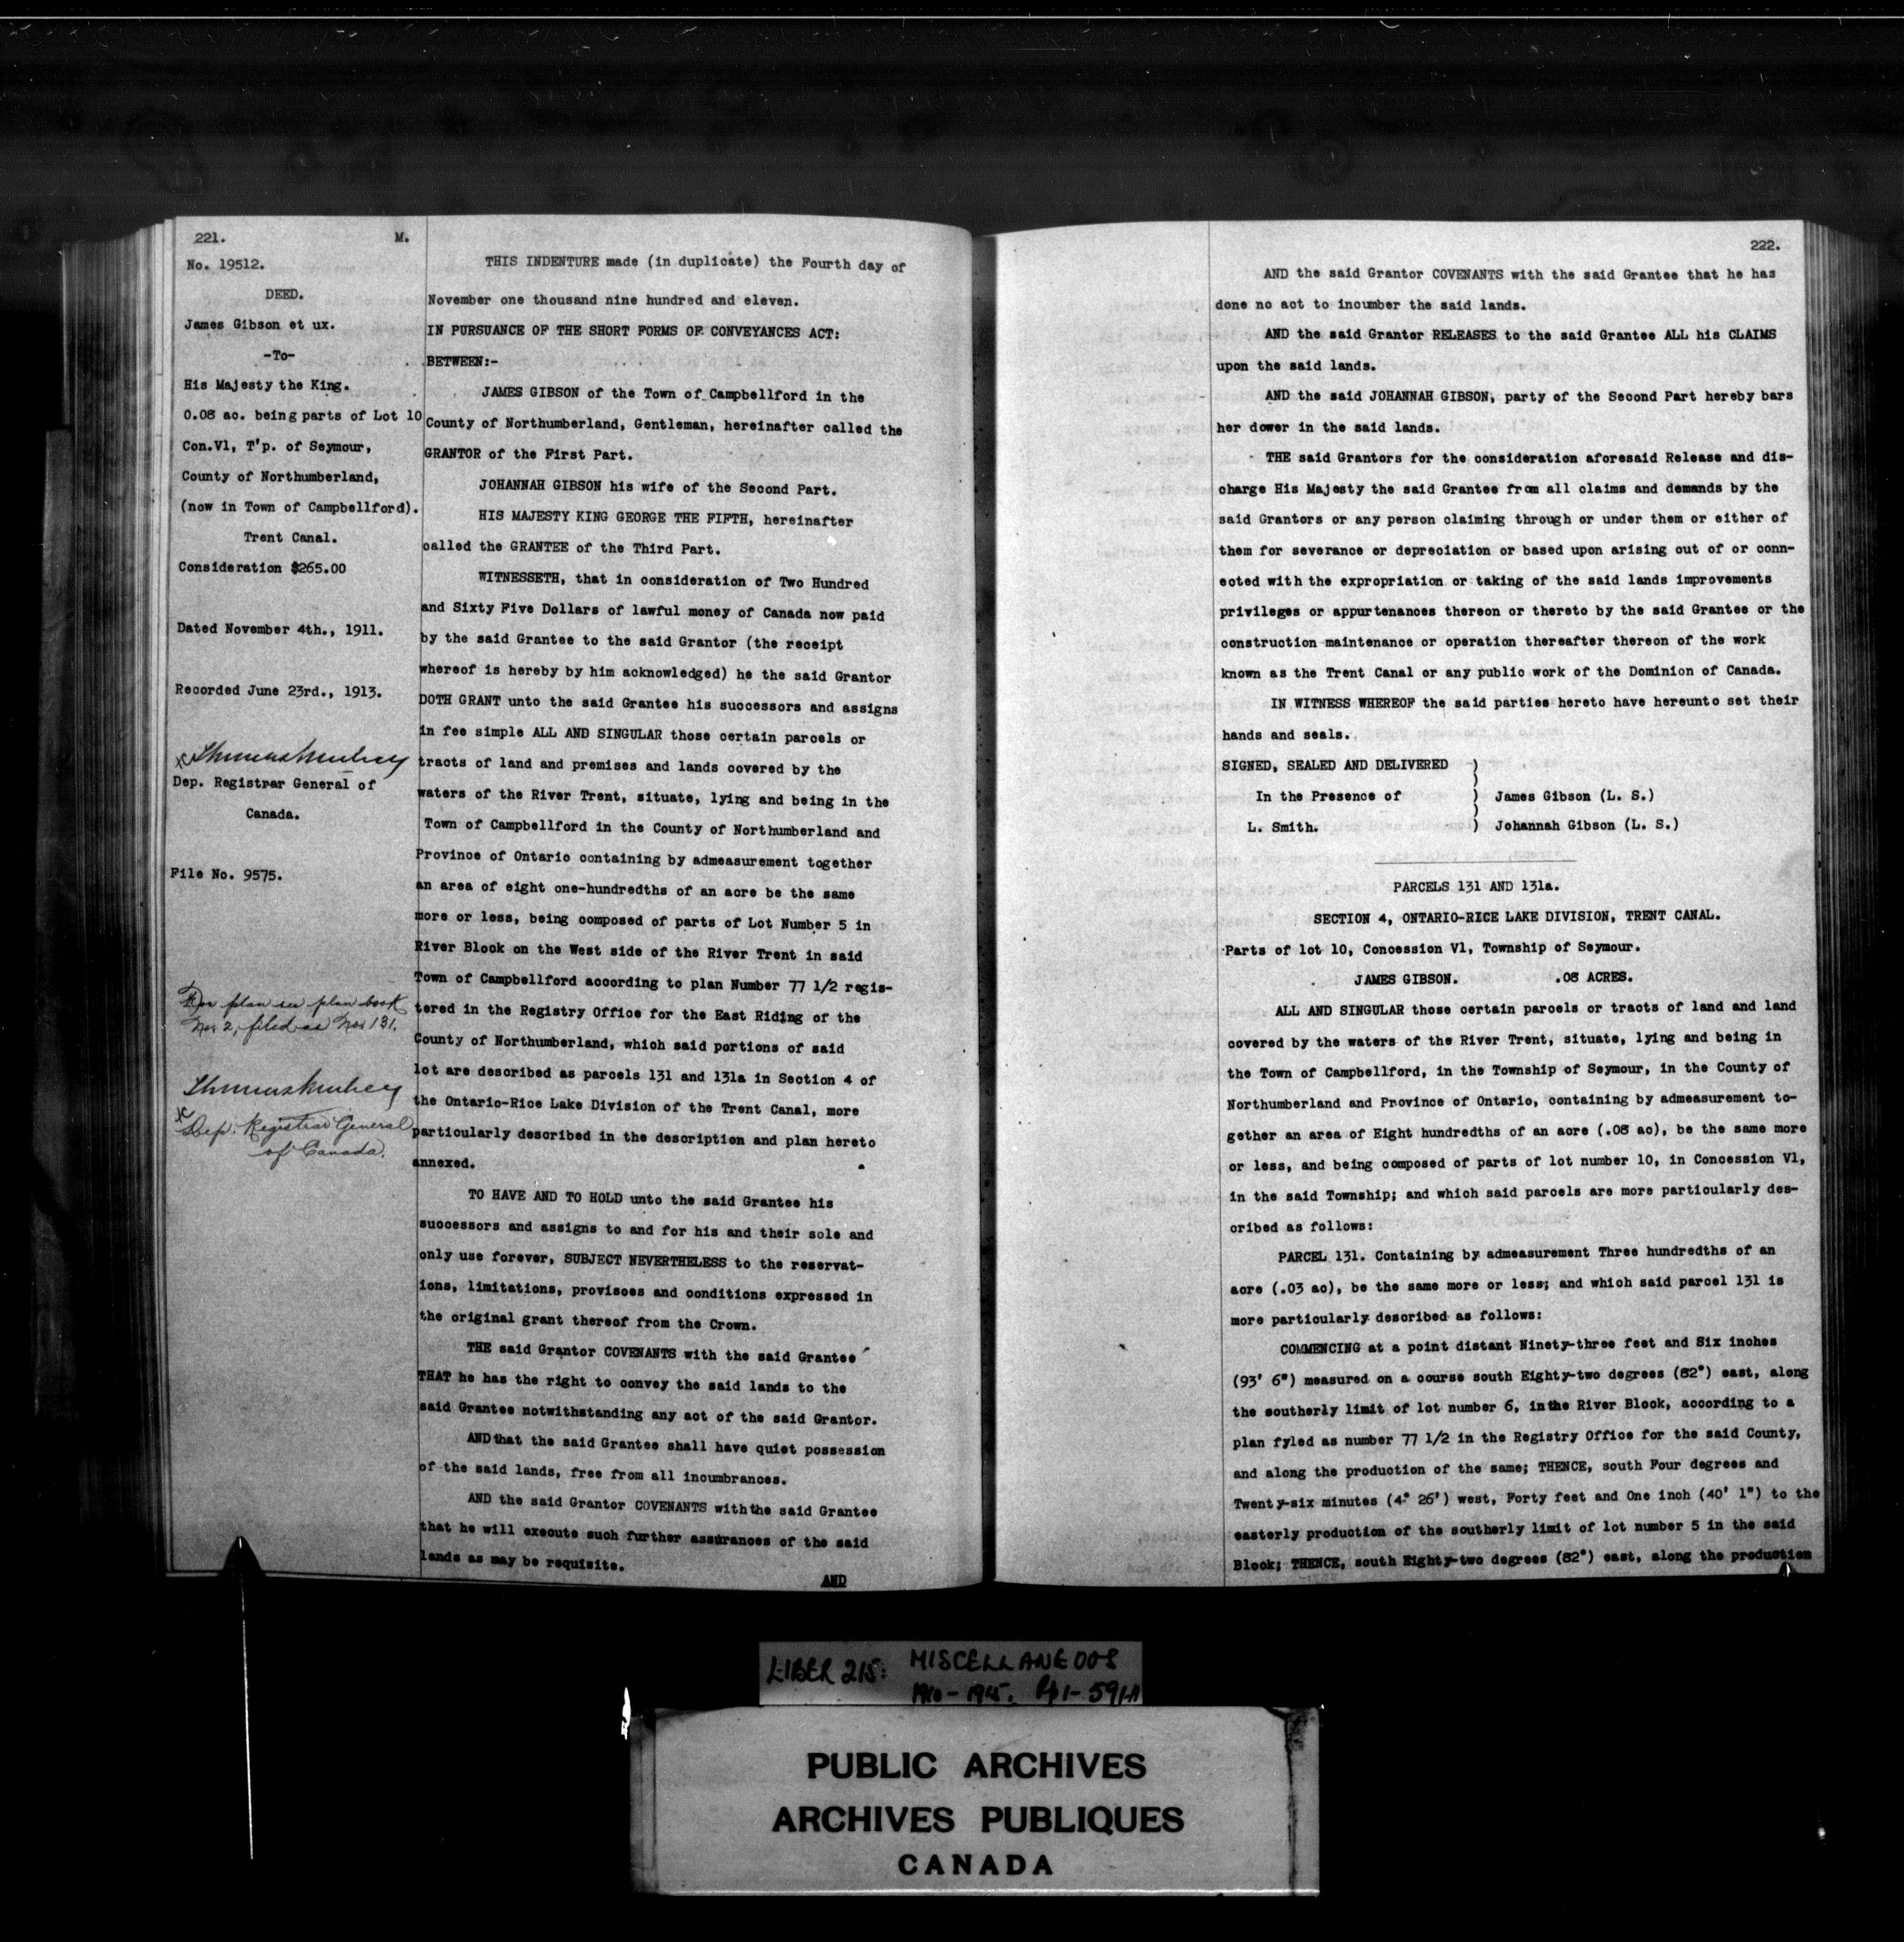 221. M.
No. 19512.
DEED.
James Gibson et ux.
-To-
His Majesty the King.
0.08 ac. being parts of Lot 10
Con.V1, T'p. of Seymour,
County of Northumberland,
(now in Town of Campbellford).
Trent Canal.
Consideration $265.00
Dated November 4th., 1911.
Recorded June 23rd., 1913.
Dep. Registrar General of
Canada.
File No. 9575.
For plan see plan book
No. 2, filed as No. 131.
Dep. Registrar General
of Canada.
THIS INDENTURE made (in duplicate) the Fourth day of
November one thousand nine hundred and eleven.
IN PURSUANCE OF THE SHORT FORMS OF CONVEYANCES ACT:
BETWEEN:-
JAMES GIBSON of the Town of Campbellford in the
County of Northumberland, Gentleman, hereinafter called the
GRANTOR of the First Part.
JOHANNAH GIBSON his wife of the Second Part.
HIS MAJESTY KING GEORGE THE FIFTH, hereinafter
called the GRANTEE of the Third Part.
WITNESSETH, that in consideration of Two Hundred
and Sixty Five Dollars of lawful money of Canada now paid
by the said Grantee to the said Grantor (the receipt
whereof is hereby by him acknowledged) he the said Grantor
DOTH GRANT unto the said Grantee his successors and assigns
in fee simple ALL AND SINGULAR those certain parcels or
tracts of land and premises and lands covered by the
waters of the River Trent, situate, lying and being in the
Town of Campbellford in the County of Northumberland and
Province of Ontario containing by admeasurement together
an area of eight one-hundredths of an acre be the same
more or less, being composed of parts of Lot Number 5 in
River Block on the West side of the River Trent in said
Town of Campbellford according to plan Number 77 1/2 regis-
tered in the Registry Office for the East Riding of the
County of Northumberland, which said portions of said
lot are described as parcels 131 and 131a in Section 4 of
the Ontario-Rice Lake Division of the Trent Canal, more
particularly described in the description and plan hereto
annexed.
TO HAVE AND TO HOLD unto the said Grantee his
successors and assigns to and for his and their sole and
only use forever, SUBJECT NEVERTHELESS to the reservat-
ions, limitations, provisoes and conditions expressed in
the original grant thereof from the Crown.
THE said Grantor COVENANTS with the said Grantee
THAT he has the right to convey the said lands to the
said Grantee notwithstanding any act of the said Grantor.
AND that the said Grantee shall have quiet possession
of the said lands, free from all incumbrances.
AND the said Grantor COVENANTS with the said Grantee
that he will execute such further assurances of the said
lands as may be requisite.
AND
222.
AND the said Grantor COVENANTS with the said Grantee that he has
done no act to incumber the said lands.
AND the said Grantor RELEASES to the said Grantee ALL his CLAIMS
upon the said lands.
AND the said JOHANNAH GIBSON, party of the Second Part hereby bars
her dower in the said lands.
THE said Grantors for the consideration aforesaid Release and dis-
charge His Majesty the said Grantee from all claims and demands by the
said Grantors or any person claiming through or under them or either of
them for severance or depreciation or based upon arising out of or conn-
ected with the expropriation or taking of the said lands improvements
privileges or appurtenances thereon or thereto by the said Grantee or the
construction maintenance or operation thereafter thereon of the work
known as the Trent Canal or any public work of the Dominion of Canada.
IN WITNESS WHEREOF the said parties hereto have hereunto set their
hands and seals.
SIGNED, SEALED AND DELIVERED )
)
In the Presence of ) James Gibson (L. S.)
)
L. Smith. ) Johannah Gibson (L. S.)
PARCELS 131 AND 131a.
SECTION 4, ONTARIO-RICE LAKE DIVISION, TRENT CANAL.
Parts of lot 10, Concession V1, Township of Seymour.
JAMES GIBSON. .08 ACRES.
ALL AND SINGULAR those certain parcels or tracts of land and land
covered by the waters of the River Trent, situate, lying and being in
the Town of Campbellford, in the Township of Seymour, in the County of
Northumberland and Province of Ontario, containing by admeasurement to-
gether an area of Eight hundredths of an acre (.08 ac), be the same more
or less, and being composed of parts of lot number 10, in Concession V1,
in the said Township; and which said parcels are more particularly des-
cribed as follows:
PARCEL 131. Containing by admeasurement Three hundredths of an
acre (.03 ac), be the same more or less; and which said parcel 131 is
more particularly described as follows:
COMMENCING at a point distant Ninety-three feet and Six inches
(93' 6") measured on a course south Eighty-two degrees (82°) east, along
the southerly limit of lot number 6, in the River Block, according to a
plan fyled as number 77 1/2 in the Registry Office for the said County,
and along the production of the same; THENCE, south Four degrees and
Twenty-six minutes (4° 26') west, Forty feet and One inch (40' 1") to the
easterly production of the southerly limit of lot number 5 in the said
Block; THENCE, south Eighty-two degrees (82°) east, along the production
LIBER 215: MISCELLANEOUS
1910-1915. Pp 1-591A
PUBLIC ARCHIVES
ARCHIVES PUBLIQUES
CANADA